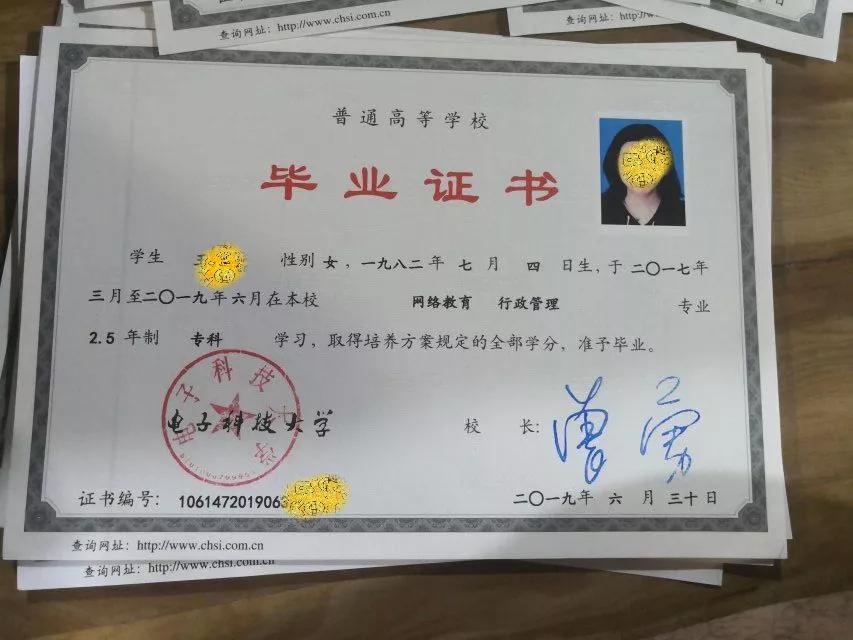 查询网址：http://www.chsi.com.cn
查询网址：http://
普通高等学校
毕业证书
学生 性别 女，一九八二年 七 月 四 日生，于二〇一七年
三月至二〇一九年六月在本校 网络教育 行政管理 专业
2.5 年制 专科 学习，取得培养方案规定的全部学分，准予毕业。
电子科技大学
校 长：
证书编号：1061472019063
二〇一九年 六 月 三十 日
查询网址：http://www.chsi.com.cn
查询网址：http://www.chsi.com.cn